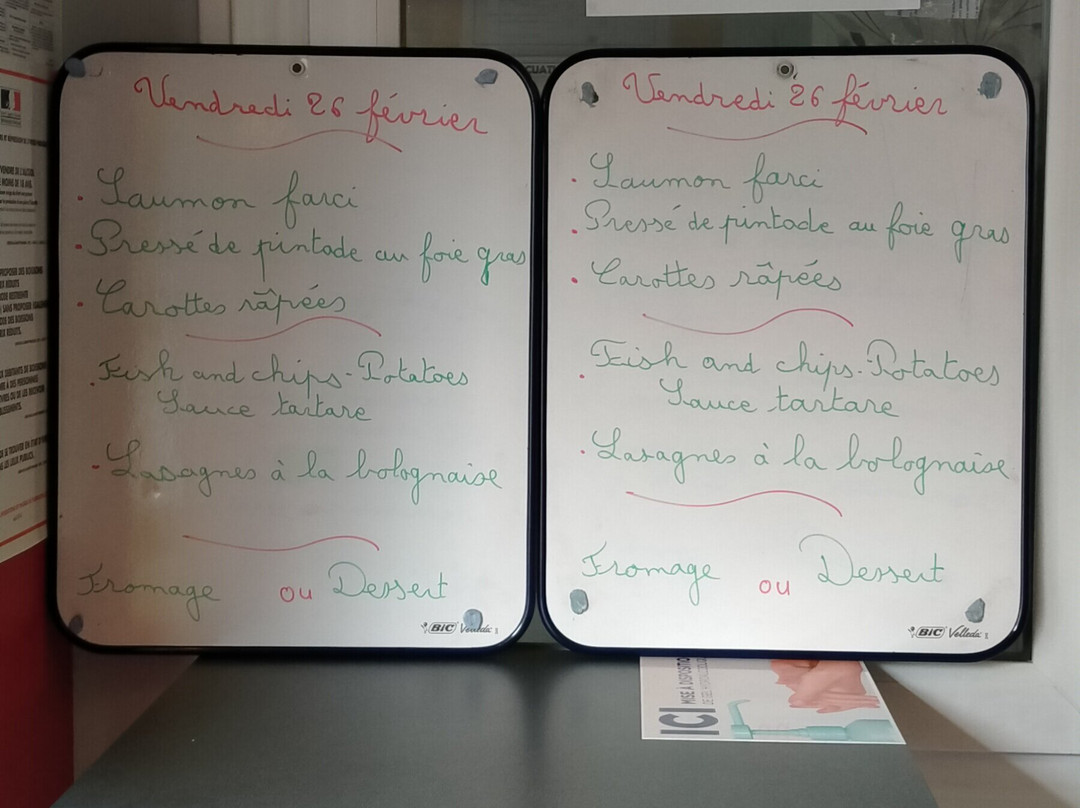 Vendredi 26 février
Saumon farci
Pressé de pintade au foie gras
Carottes râpées
Fish and chips - Potatoes
Sauce tartare
Lasagnes à la bolognaise
Fromage ou Dessert
BIC Velleda
Vendredi 26 février
Saumon farci
Pressé de pintade au foie gras
Carottes râpées
Fish and chips - Potatoes
Sauce tartare
Lasagnes à la bolognaise
Fromage ou Dessert
BIC Velleda
ICI
MISE À DISPOSITIO